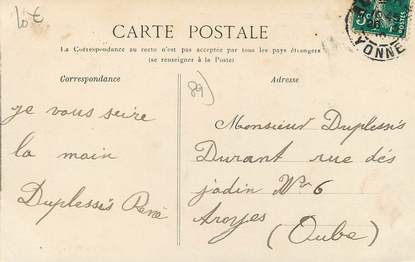 10€
CARTE POSTALE
La Correspondance au recto n'est pas acceptée par tous les pays étrangers
(se renseigner à la Poste)
Correspondance
Adresse
YONNE
89)
je vous seire
la main
Duplessis René
Monsieur Duplessis
Durant rue dés
jadin No 6
Aroyes
(Oube)